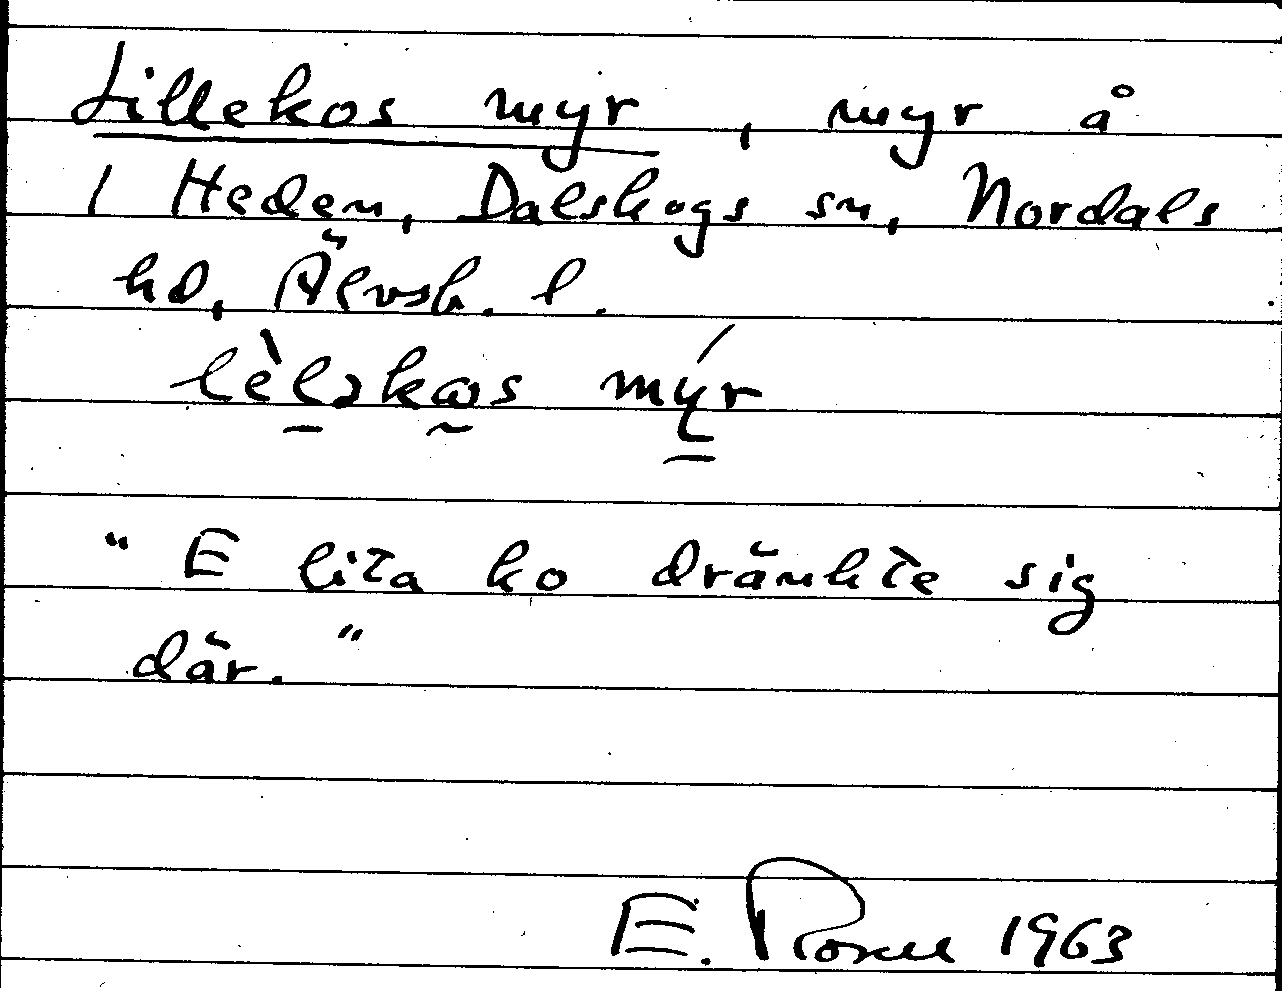 Lillekos myr, myr å
1 Heden, Dalskogs sn, Nordals
hd, Älvsb. l.
lèləkωs mýr
"E lita ko dränkte sig
där."
E. 1963